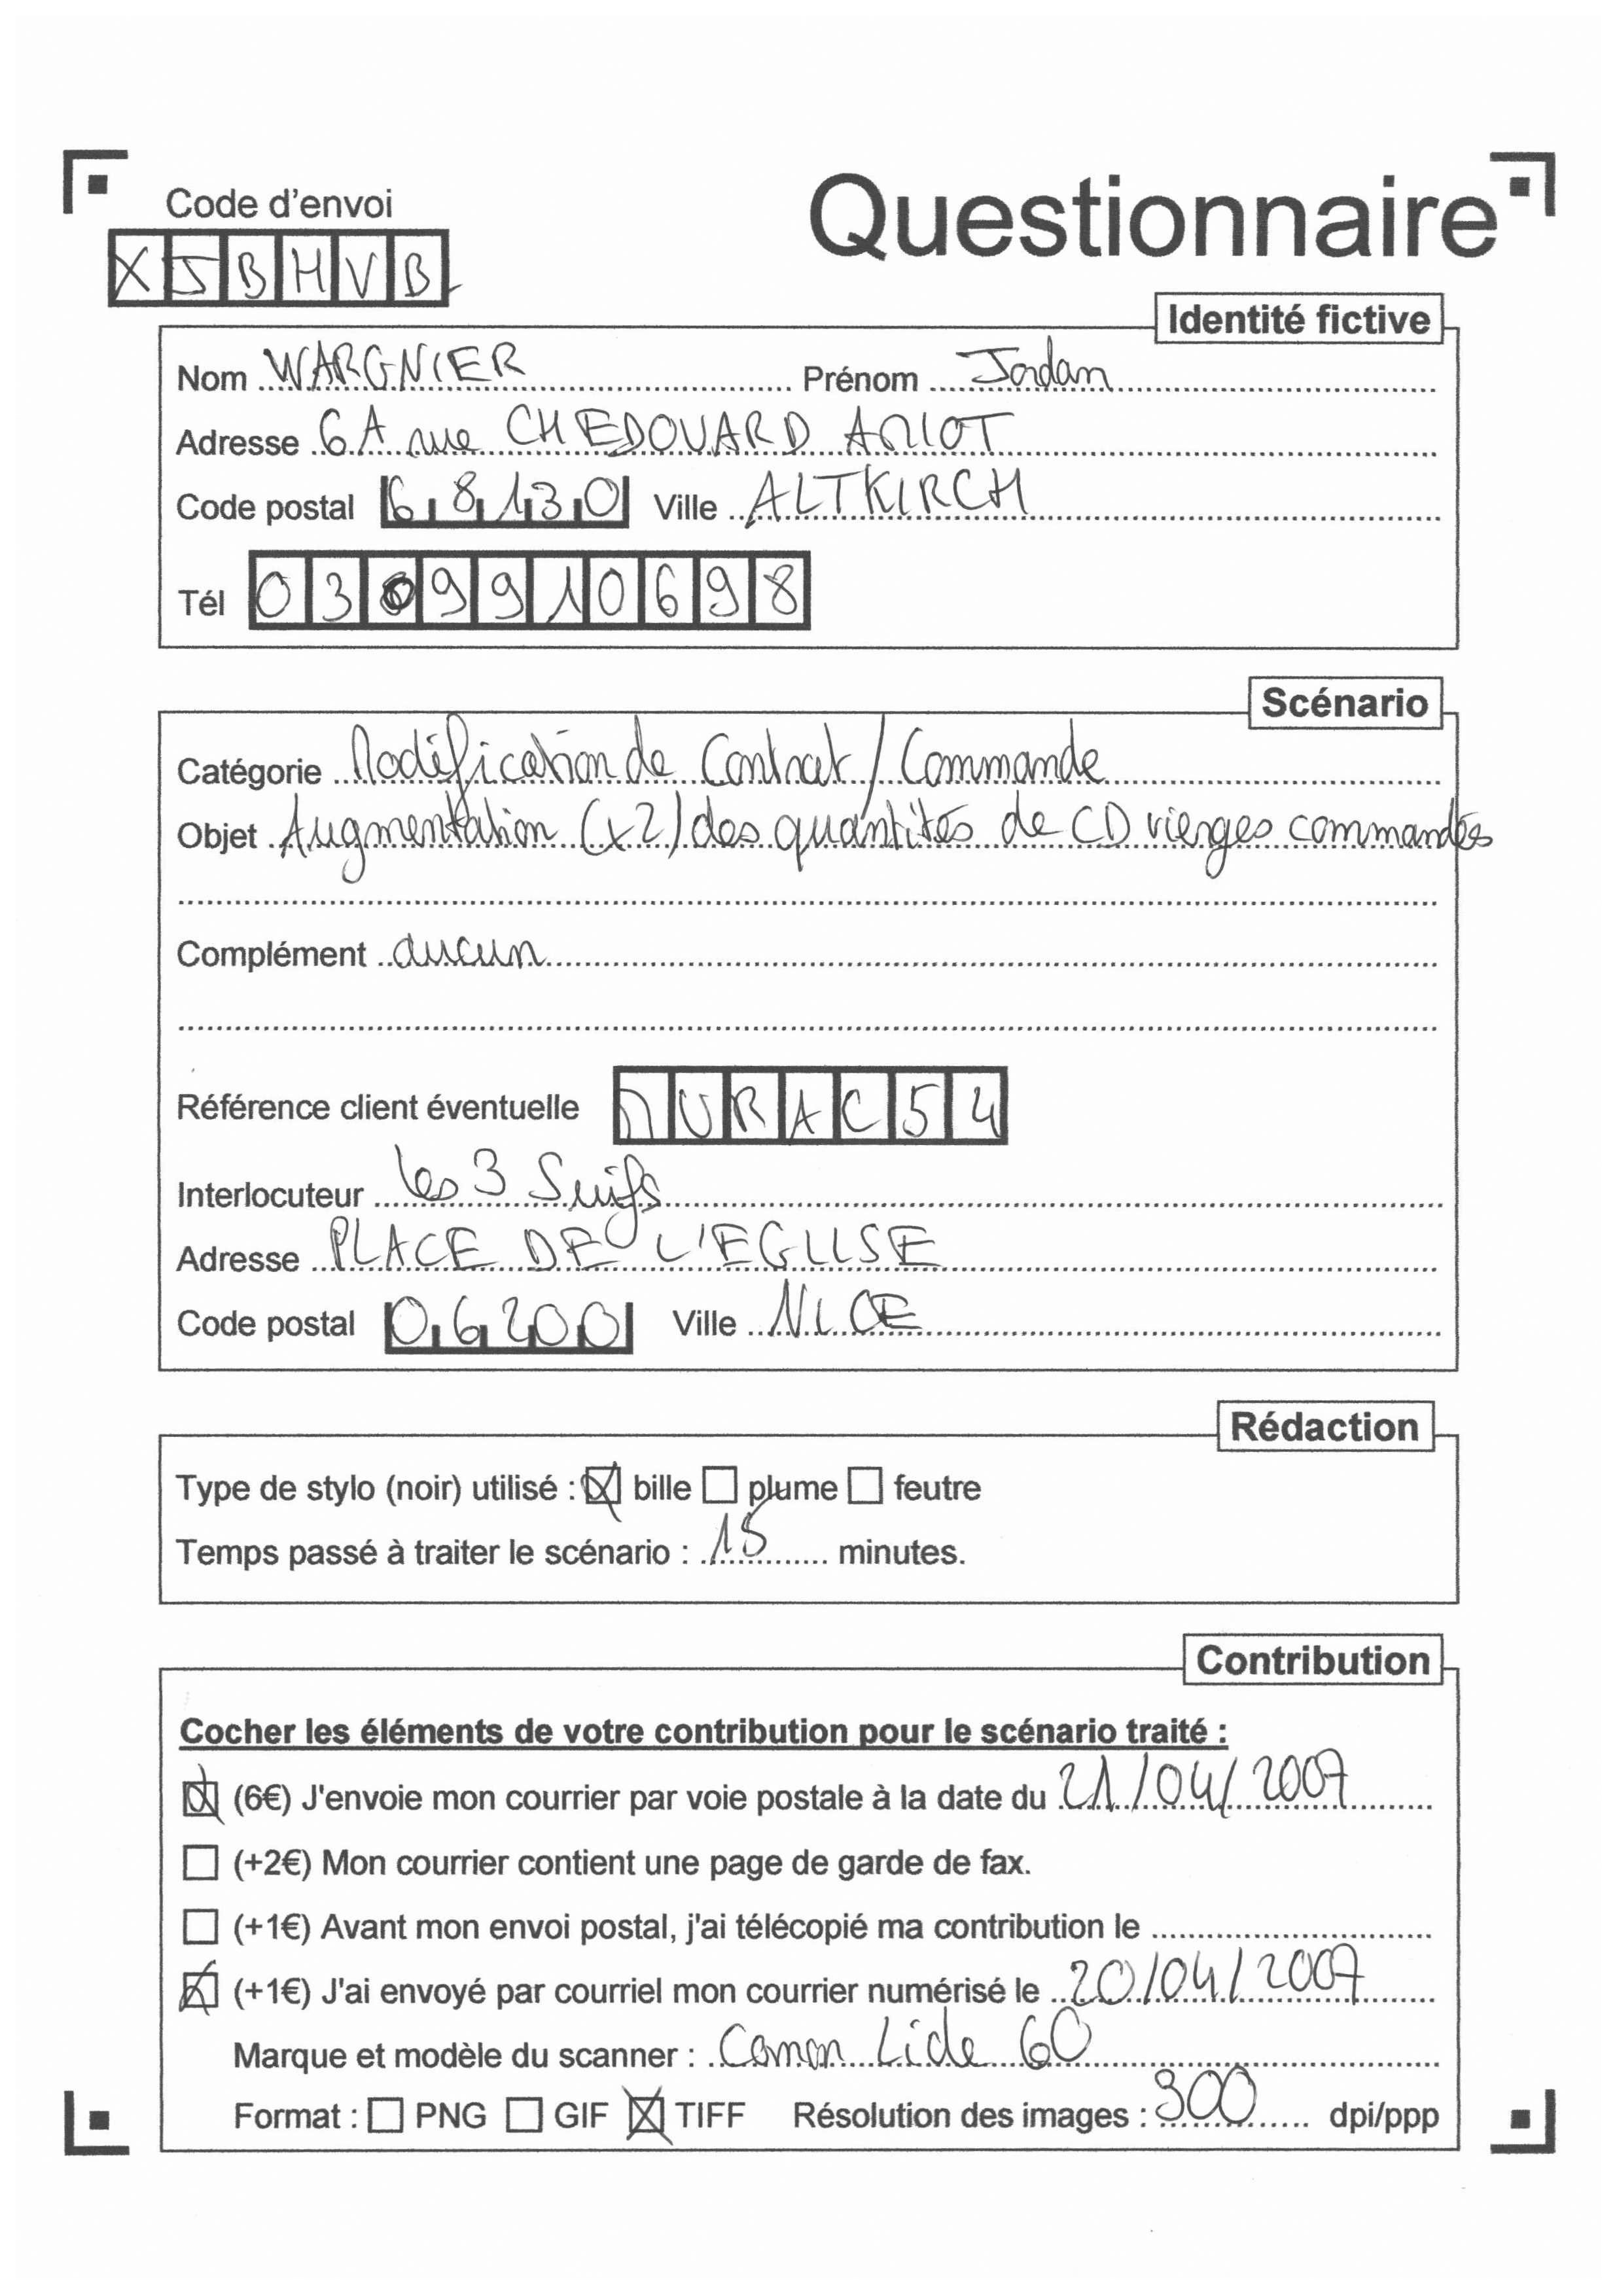 Code d'envoi
Questionnaire
XJBHVB
Identité fictive
Nom WARGNIER Prénom Jordan
Adresse 6A rue CH EDOUARD AMIOT
Code postal 68130 Ville ALTKIRCH
Tél 0309910698
Scénario
Catégorie Modification de Contrat / Commande
Objet Augmentation (x2) des quantités de CD vierges commandés
Complément aucun
Référence client éventuelle MURAC54
Interlocuteur les 3 Suifs
Adresse PLACE DE L'EGLISE
Code postal 06200 Ville NICE
Rédaction
Type de stylo (noir) utilisé : bille plume feutre
Temps passé à traiter le scénario : 15 minutes.
Contribution
Cocher les éléments de votre contribution pour le scénario traité :
(6€) J'envoie mon courrier par voie postale à la date du 21/04/2007
(+2€) Mon courrier contient une page de garde de fax.
(+1€) Avant mon envoi postal, j'ai télécopié ma contribution le
(+1€) J'ai envoyé par courriel mon courrier numérisé le 20/04/2007
Marque et modèle du scanner : Canon Lide 60
Format : PNG GIF TIFF Résolution des images : 300 dpi/ppp